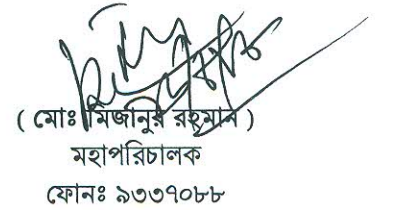 ( মোঃ মিজানুর রহমান )
মহাপরিচালক
ফোনঃ ৯৩৩৭০৮৮